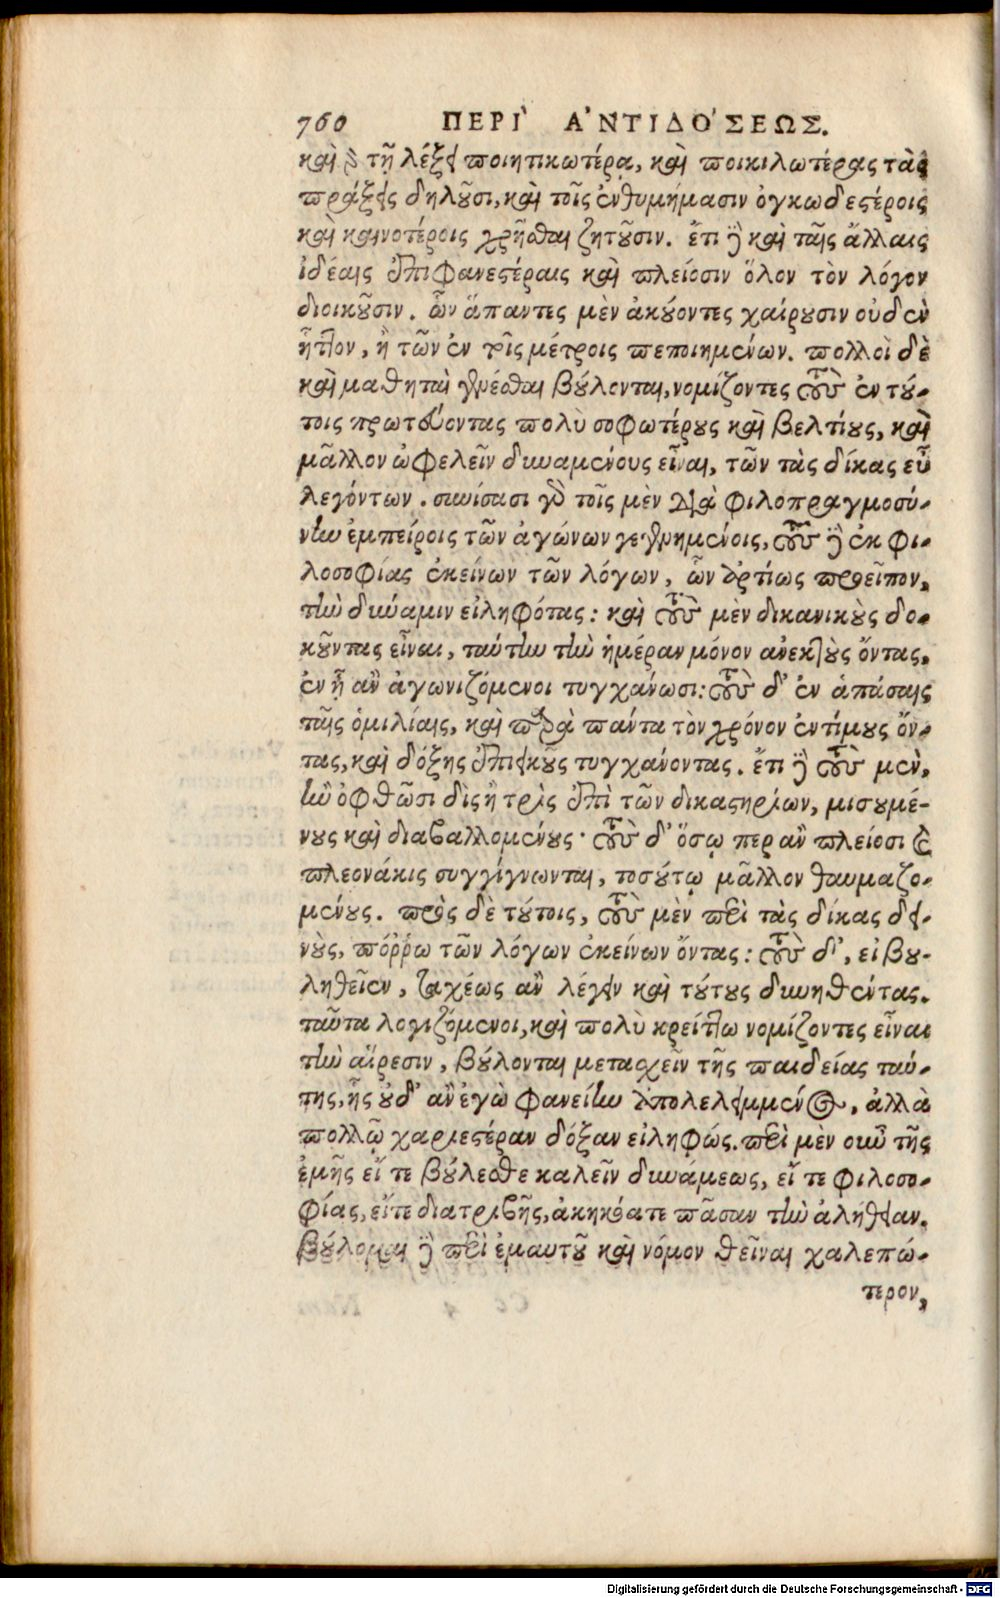 760 ΠΕΡΙ` Α᾿ΝΤΙΔΟ´ΣΕΩΣ.
καὶ τῇ λέξει ποιητικωτέρᾳ, καὶ ποικιλωτέρας τὰς
πράξεις δηλοῦσι, καὶ τοῖς ἐνθυμήμασιν ὀγκωδεστέροις
καὶ καινοτέροις χρῆσθαι ζητοῦσιν. ἔτι δὲ καὶ ταῖς ἄλλαις
ἰδέαις ἐπιφανεστέραις καὶ πλείοσιν ὅλον τὸν λόγον
διοικοῦσιν. ὧν ἅπαντες μὲν ἀκούοντες χαίρουσιν οὐδὲν
ἧττον, ἢ τῶν ἐν τοῖς μέτροις πεποιημένων. πολλοὶ δὲ
καὶ μαθηταὶ γενέσθαι βούλονται, νομίζοντες τοὺς ἐν τού-
τοις πρωτεύοντας πολὺ σοφωτέρους καὶ βελτίους, καὶ
μᾶλλον ὠφελεῖν δυναμένους εἶναι, τῶν τὰς δίκας εὖ
λεγόντων. συνίσασι γὰρ τοῖς μὲν διὰ φιλοπραγμοσύ-
νην ἐμπείροις τῶν ἀγώνων γεγενημένοις, τοὺς δὲ ἐκ φι-
λοσοφίας ἐκείνων τῶν λόγων, ὧν ἀρτίως προεῖπον,
τὴν δύναμιν εἰληφότας: καὶ τοὺς μὲν δικανικοὺς δο-
κοῦντας εἶναι, ταύτην τὴν ἡμέραν μόνον ἀνεκτοὺς ὄντας,
ἐν ᾗ ἂν ἀγωνιζόμενοι τυγχάνωσι: τοὺς δ' ἐν ἁπάσαις
ταῖς ὁμιλίαις, καὶ παρὰ πάντα τὸν χρόνον ἐντίμους ὄν-
τας, καὶ δόξης ἐπιεικοῦς τυγχάνοντας. ἔτι δὲ τοὺς μὲν,
ἢν ὀφθῶσι δὶς ἢ τρὶς ἐπὶ τῶν δικαστηρίων, μισουμέ-
νους καὶ διαβαλλομένους· τοὺς δ' ὅσῳ περ ἂν πλείοσι καὶ
πλεονάκις συγγίγνωνται, τοσούτῳ μᾶλλον θαυμαζο-
μένους. πρὸς δὲ τούτοις, τοὺς μὲν περὶ τὰς δίκας δει-
νοὺς, πόῤῥω τῶν λόγων ἐκείνων ὄντας: τοὺς δ', εἰ βου-
ληθεῖεν, ταχέως ἂν λέγειν καὶ τούτους δυνηθέντας.
ταῦτα λογιζόμενοι, καὶ πολὺ κρείττω νομίζοντες εἶναι
τὴν αἵρεσιν, βούλονται μετασχεῖν τῆς παιδείας ταύ-
της, ἧς οὐδ' ἂν ἐγὼ φανείην ἀπολελειμμένος, ἀλλὰ
πολλῷ χαριεστέραν δόξαν εἰληφώς. περὶ μὲν οὖν τῆς
ἐμῆς εἴ τε βούλεσθε καλεῖν δυνάμεως, εἴ τε φιλοσο-
φίας, εἴτε διατριβῆς, ἀκηκόατε πᾶσαν τὴν ἀλήθειαν.
βούλομαι δὲ περὶ ἐμαυτοῦ καὶ νόμον θεῖναι χαλεπώ-
τερον,
Digitalisierung gefördert durch die Deutsche Forschungsgemeinschaft - DFG